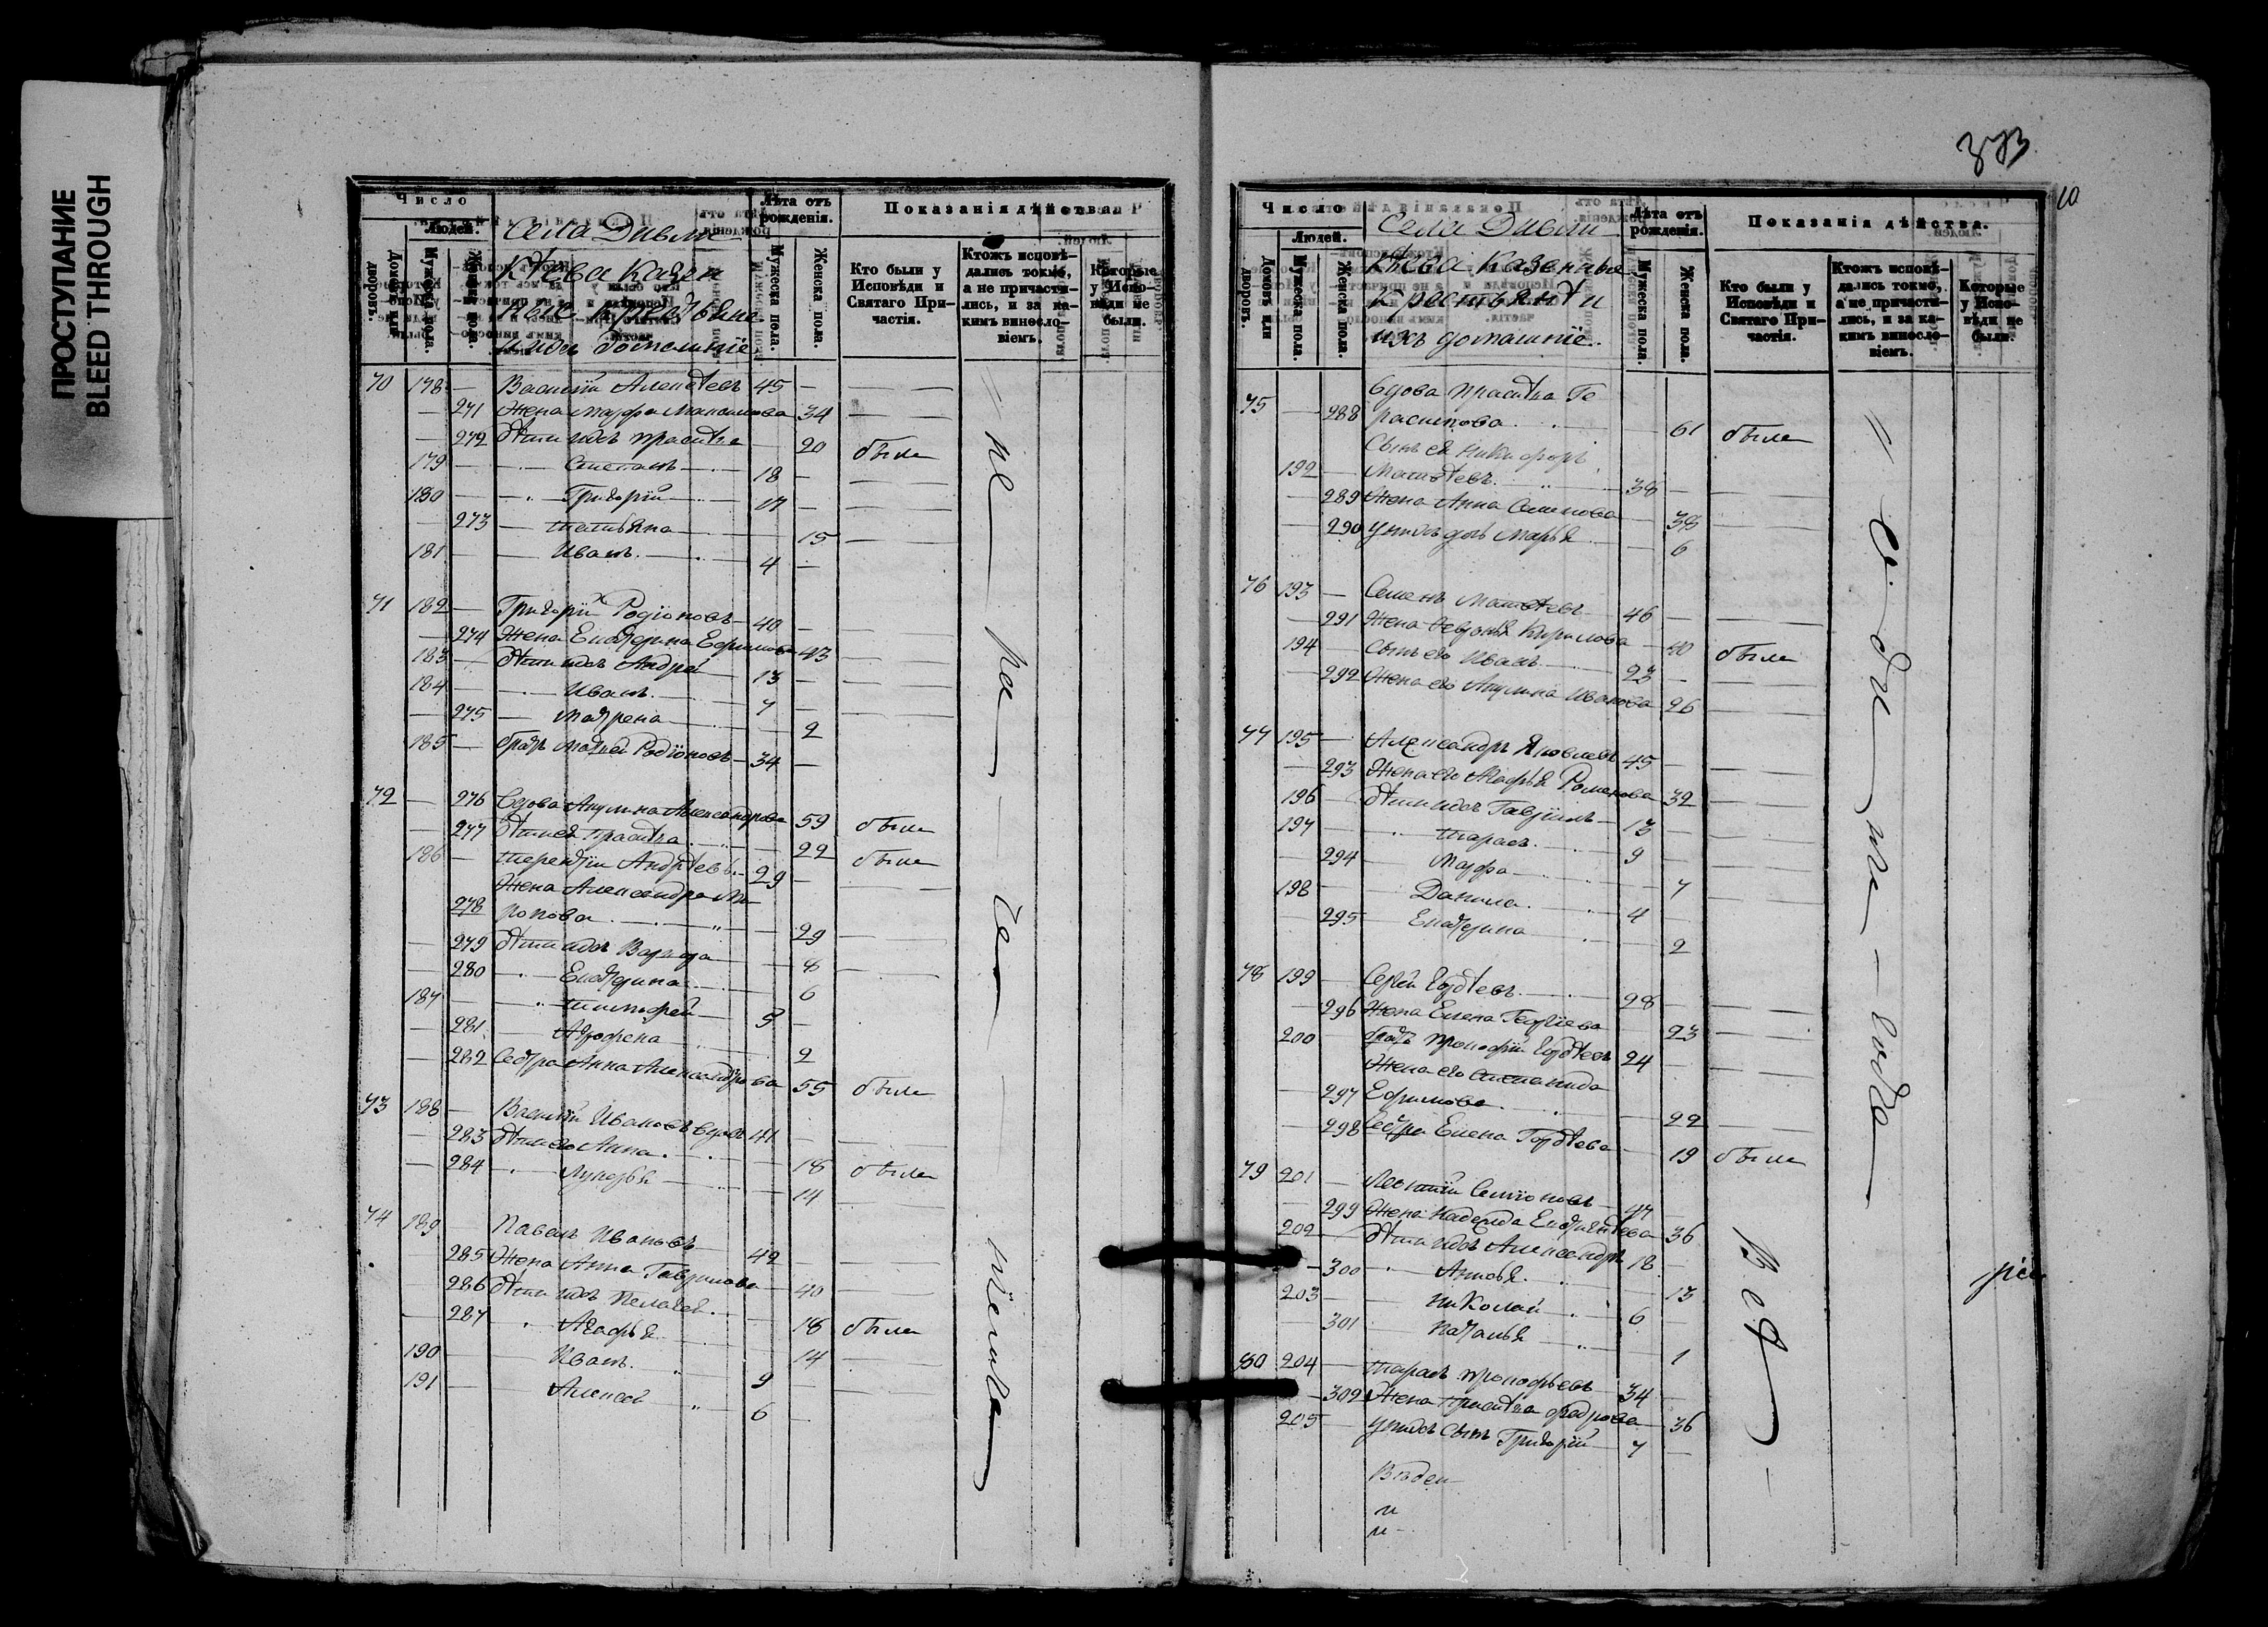 ПРОСТУПАНИЕ
BLEED THROUGH
Число
Людей.
Домовъ или дворовъ.
Мужеска пола.
Женска пола.
Села
казен
ные
ихъ домашніе
Лѣта отъ рожденія.
Мужеска пола.
Женска пола.
Показанія дѣйства.
Кто были у Исповѣди и Святаго Причастія.
Ктожъ исповѣдались токмо, а не причастились, и за какимъ винословіемъ.
Которые у Исповѣди не были.
70 178 — Василій Алексѣевъ 45 —
— 271 Жена Марфа Максимова 34 —
— 272 Дѣти ихъ — 20 были
179 — Степанъ — 18 —
180 — Григорій — 17 —
— 273 — Татьяна — 15 —
181 — Иванъ — 4 —
71 182 — Григорій Родіоновъ — 40 —
— 274 Жена Екатерина Ефимова 43
183 — Дѣти ихъ Андрей 13 —
184 — Иванъ — 7 —
— 275 — Матрена — 2
185 — братъ Матвей Родіоновъ — 34 —
72 — 276 Вдова Акулина Александрова 59 были
— 277 — 22 были
186 — Терентій Андрѣевъ — 29 —
Жена Александра Ми
278 ронова — 29
— 279 Дѣти ихъ Варвара 8
— 280 — Екатерина — 6
187 — Тимофей — 5 —
— 281 — Агрофена — 2
— 282 Сестра Анна Александрова 55 были
73 188 — Василій Ивановъ вдовъ 41 —
— 283 Дѣти его Анна — 18 были
— 284 — Лукерья — 14
74 189 Павелъ Ивановъ 42
285 Жена Анна Гаврилова 40
286 Дѣти ихъ Пелагея — 18 были
— 287 Агафья — 14
190 — Иванъ — 9
191 — Алексей — 6 —
373
10
Число
Людей.
Домовъ или дворовъ.
Мужеска пола.
Женска пола.
Села
казенные
Крестьянѣ и
ихъ домашніе
Лѣта отъ рожденія.
Мужеска пола.
Женска пола.
Показанія дѣйства.
Кто были у Исповѣди и Святаго Причастія.
Ктожъ исповѣдались токмо, а не причастились, и за какимъ винословіемъ.
Которые у Исповѣди не были.
вдова Ге
75 — 288 расимова — 61 были
Сынъ ея Никифоръ
192 — Матвѣевъ — 38 —
— 289 Жена Анна Семенова 38
— 290 у нихъ дочь Марья 6
76 193 — Семенъ Матвѣевъ 46 —
— 291 Жена Февронья Кирилова 40 были
194 — Сынъ его Иванъ — 23 —
— 292 Жена его Акулина Иванова 26
77 195 — Александръ Яковлевъ 45 —
— 293 Жена его Агафья Романова 32
196 — Дѣти ихъ Гавріилъ — 13 —
197 — Тарасъ — 9
— 294 Марфа — 7
198 — Данила — 4 —
— 295 Екатерина — 2
78 199 — Сергей Гордѣевъ — 28 —
— 296 Жена Елена Георгіева 23
200 братъ Прокофій Гордѣевъ 24
Жена его Степанида
— 297 Ефимова — 22
— 298 Сестра Елена Гордѣева — 19 были
79 201 — Леонтій — 47 —
— 299 Жена Надежда 36
202 — Дѣти ихъ Александръ 18 —
— 300 — 13
203 — Николай — 6 —
301 — Наталья — 1
80 204 — Тарасъ Прокофьевъ 34 —
— 302 Жена Федрова 36
205 — у нихъ сынъ Григорій 7 —